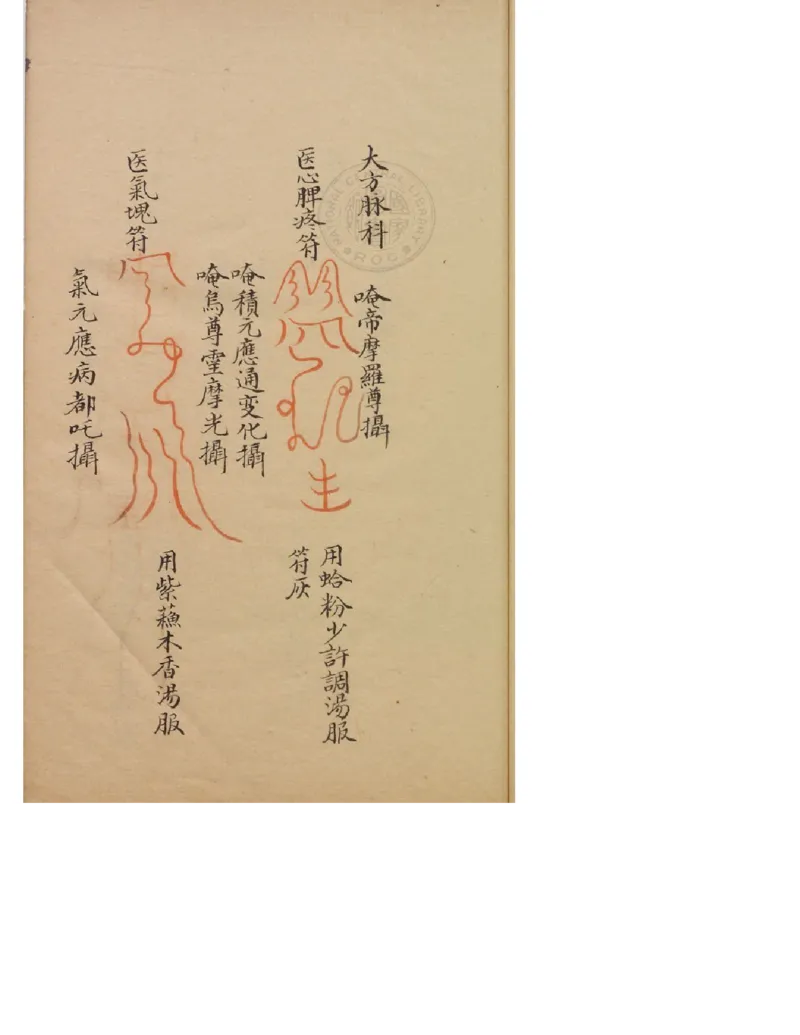 大方脉科
唵帝摩羅尊攝
医心脾疼符
用蛤粉少許調湯服
符灰
唵積元應通变化攝
唵烏尊霊摩光攝
医氣塊符
用紫蘓木香湯服
氣元應病都吒攝
NATIONAL CENTRAL LIBRARY
R.O.C.